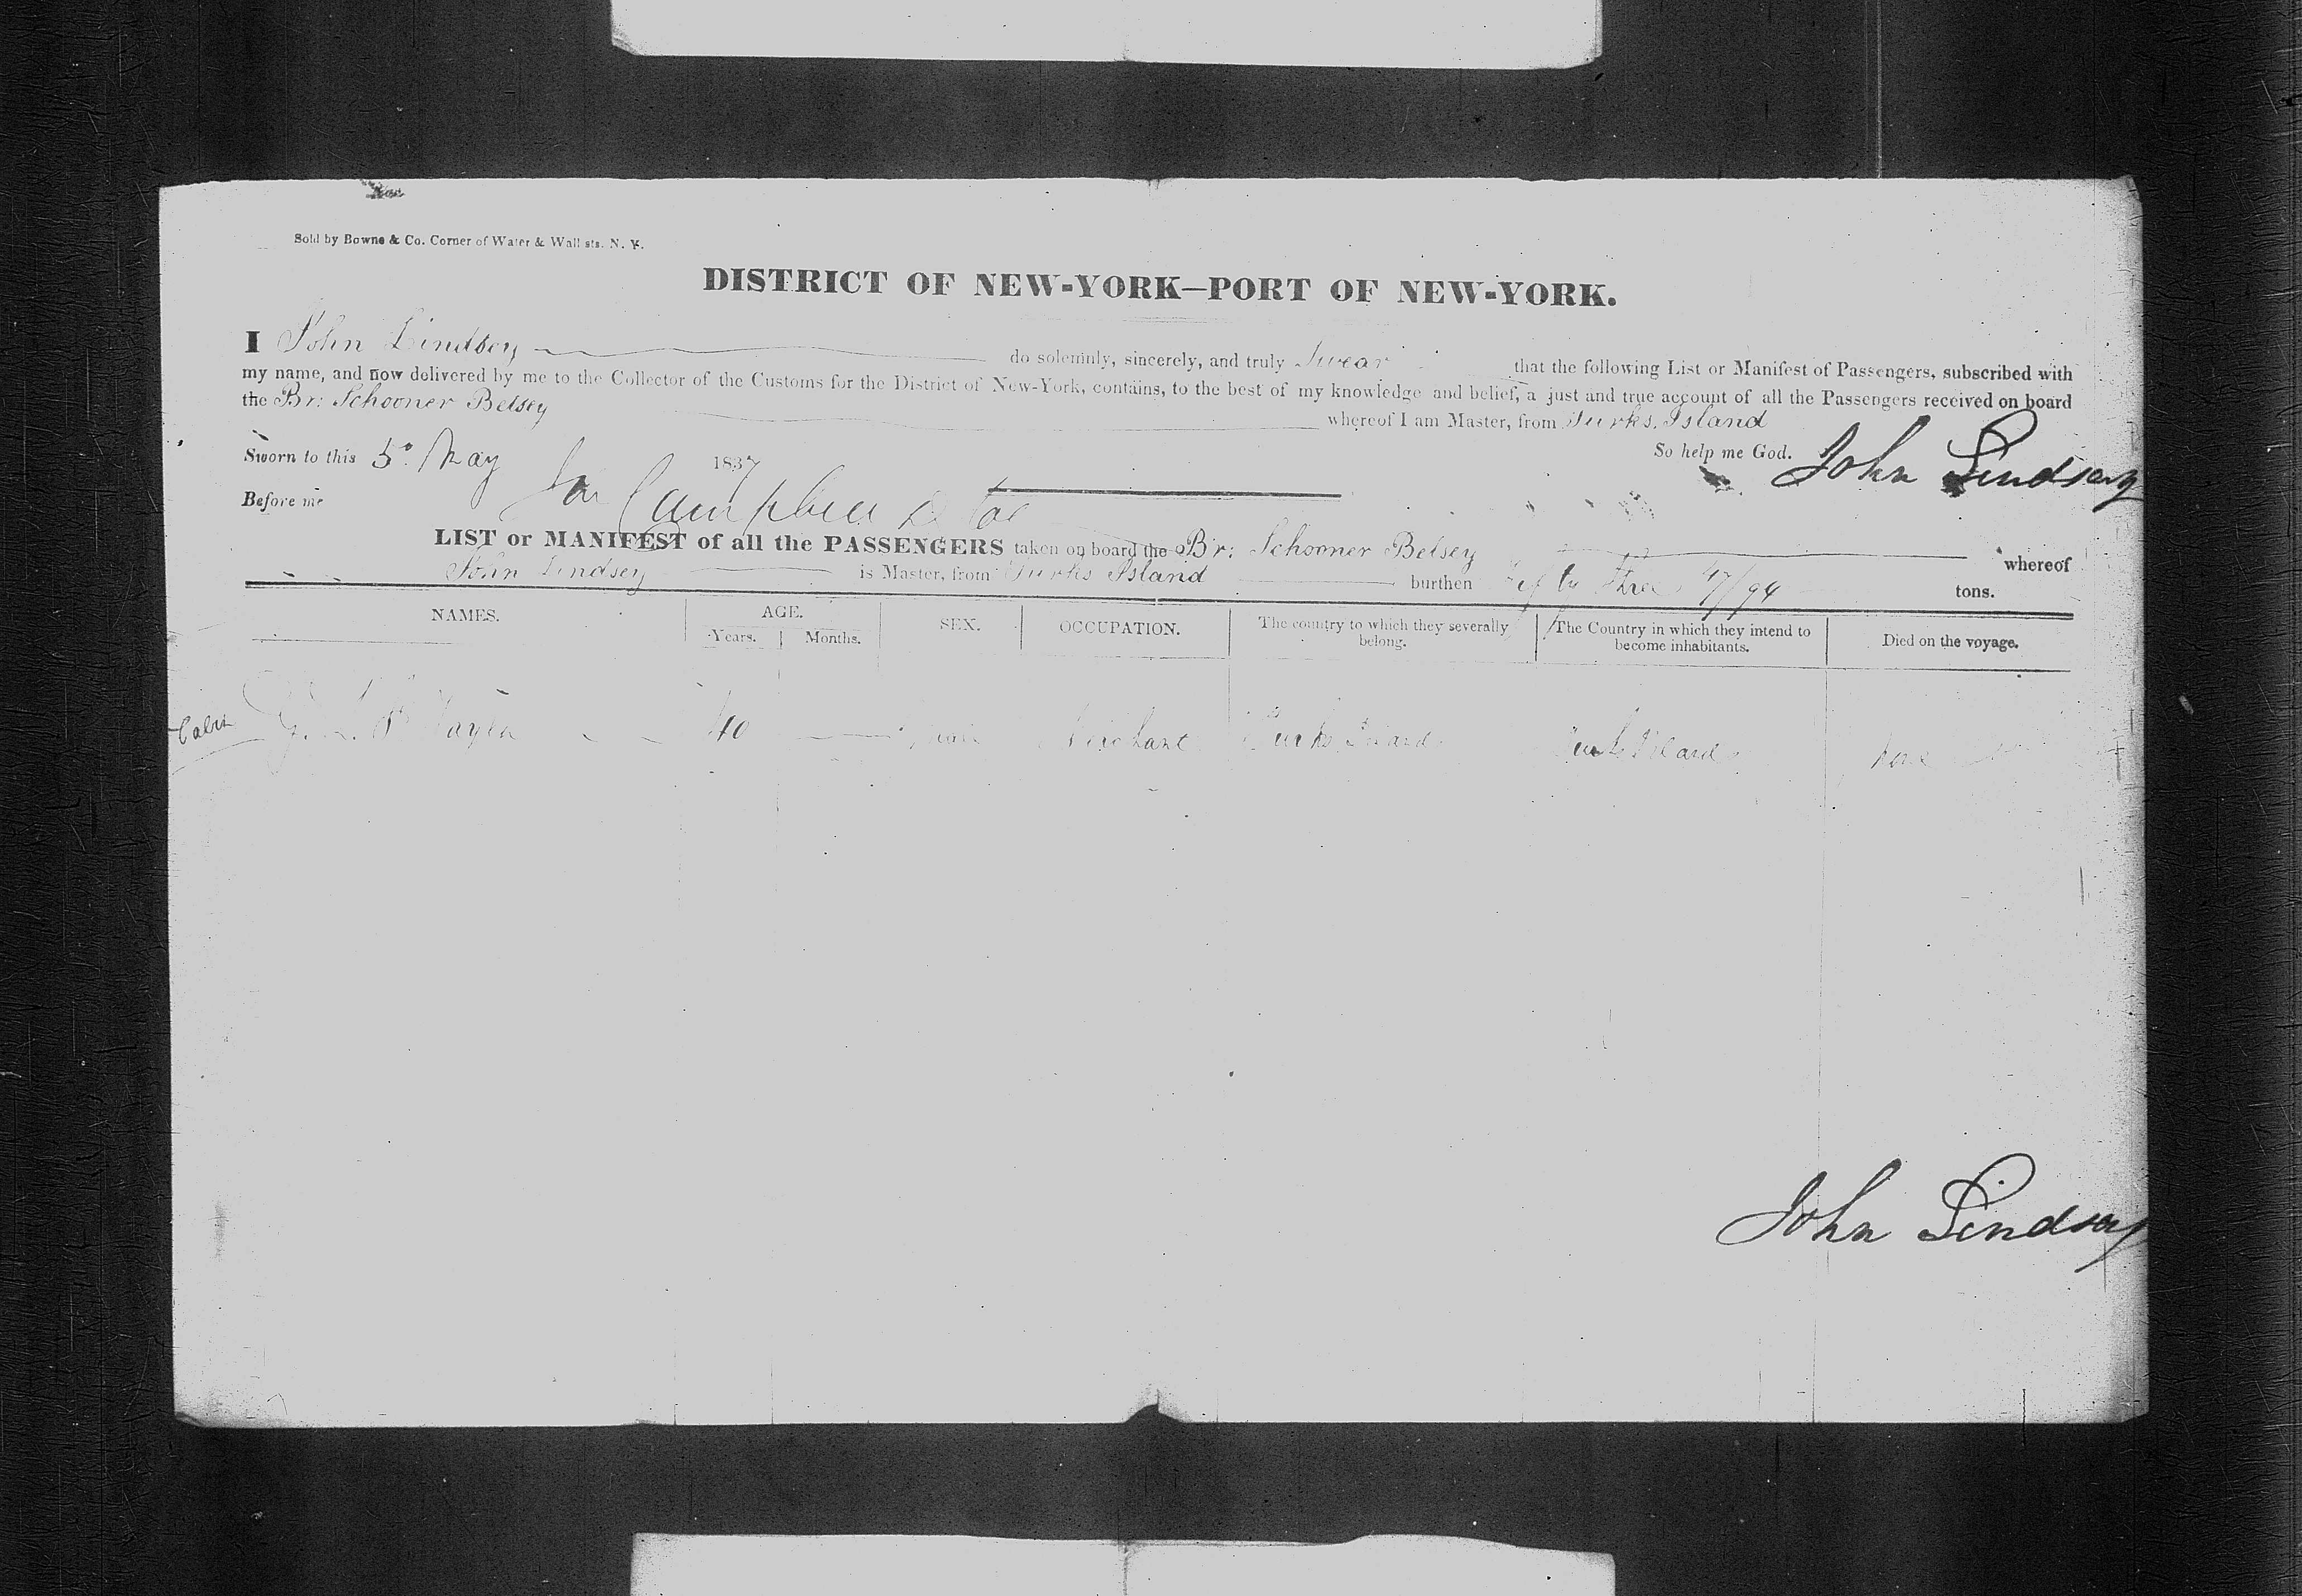 Sold by Bowne & Co. Corner of Water & Wall sts. N. Y.
DISTRICT OF NEW-YORK—PORT OF NEW-YORK.
I John Lindsey do solemnly, sincerely, and truly Swear that the following List or Manifest of Passengers, subscribed with
my name, and now delivered by me to the Collector of the Customs for the District of New-York, contains, to the best of my knowledge and belief, a just and true account of all the Passengers received on board
the Br: Schooner Betsey whereof I am Master, from Turks Island
Sworn to this 5º May 1837 So help me God. John Lindsay
Before me Campbell
LIST or MANIFEST of all the PASSENGERS taken on board the Br: Schooner Betsey whereof
John Lindsey is Master, from Turks Island burthen Fifty Three 47/94 tons.
NAMES. AGE. SEX. OCCUPATION. The country to which they severally belong. The Country in which they intend to become inhabitants. Died on the voyage.
Years. Months.
Cabin 40 Merchant Turks Island Turks Island None
John Lindsay